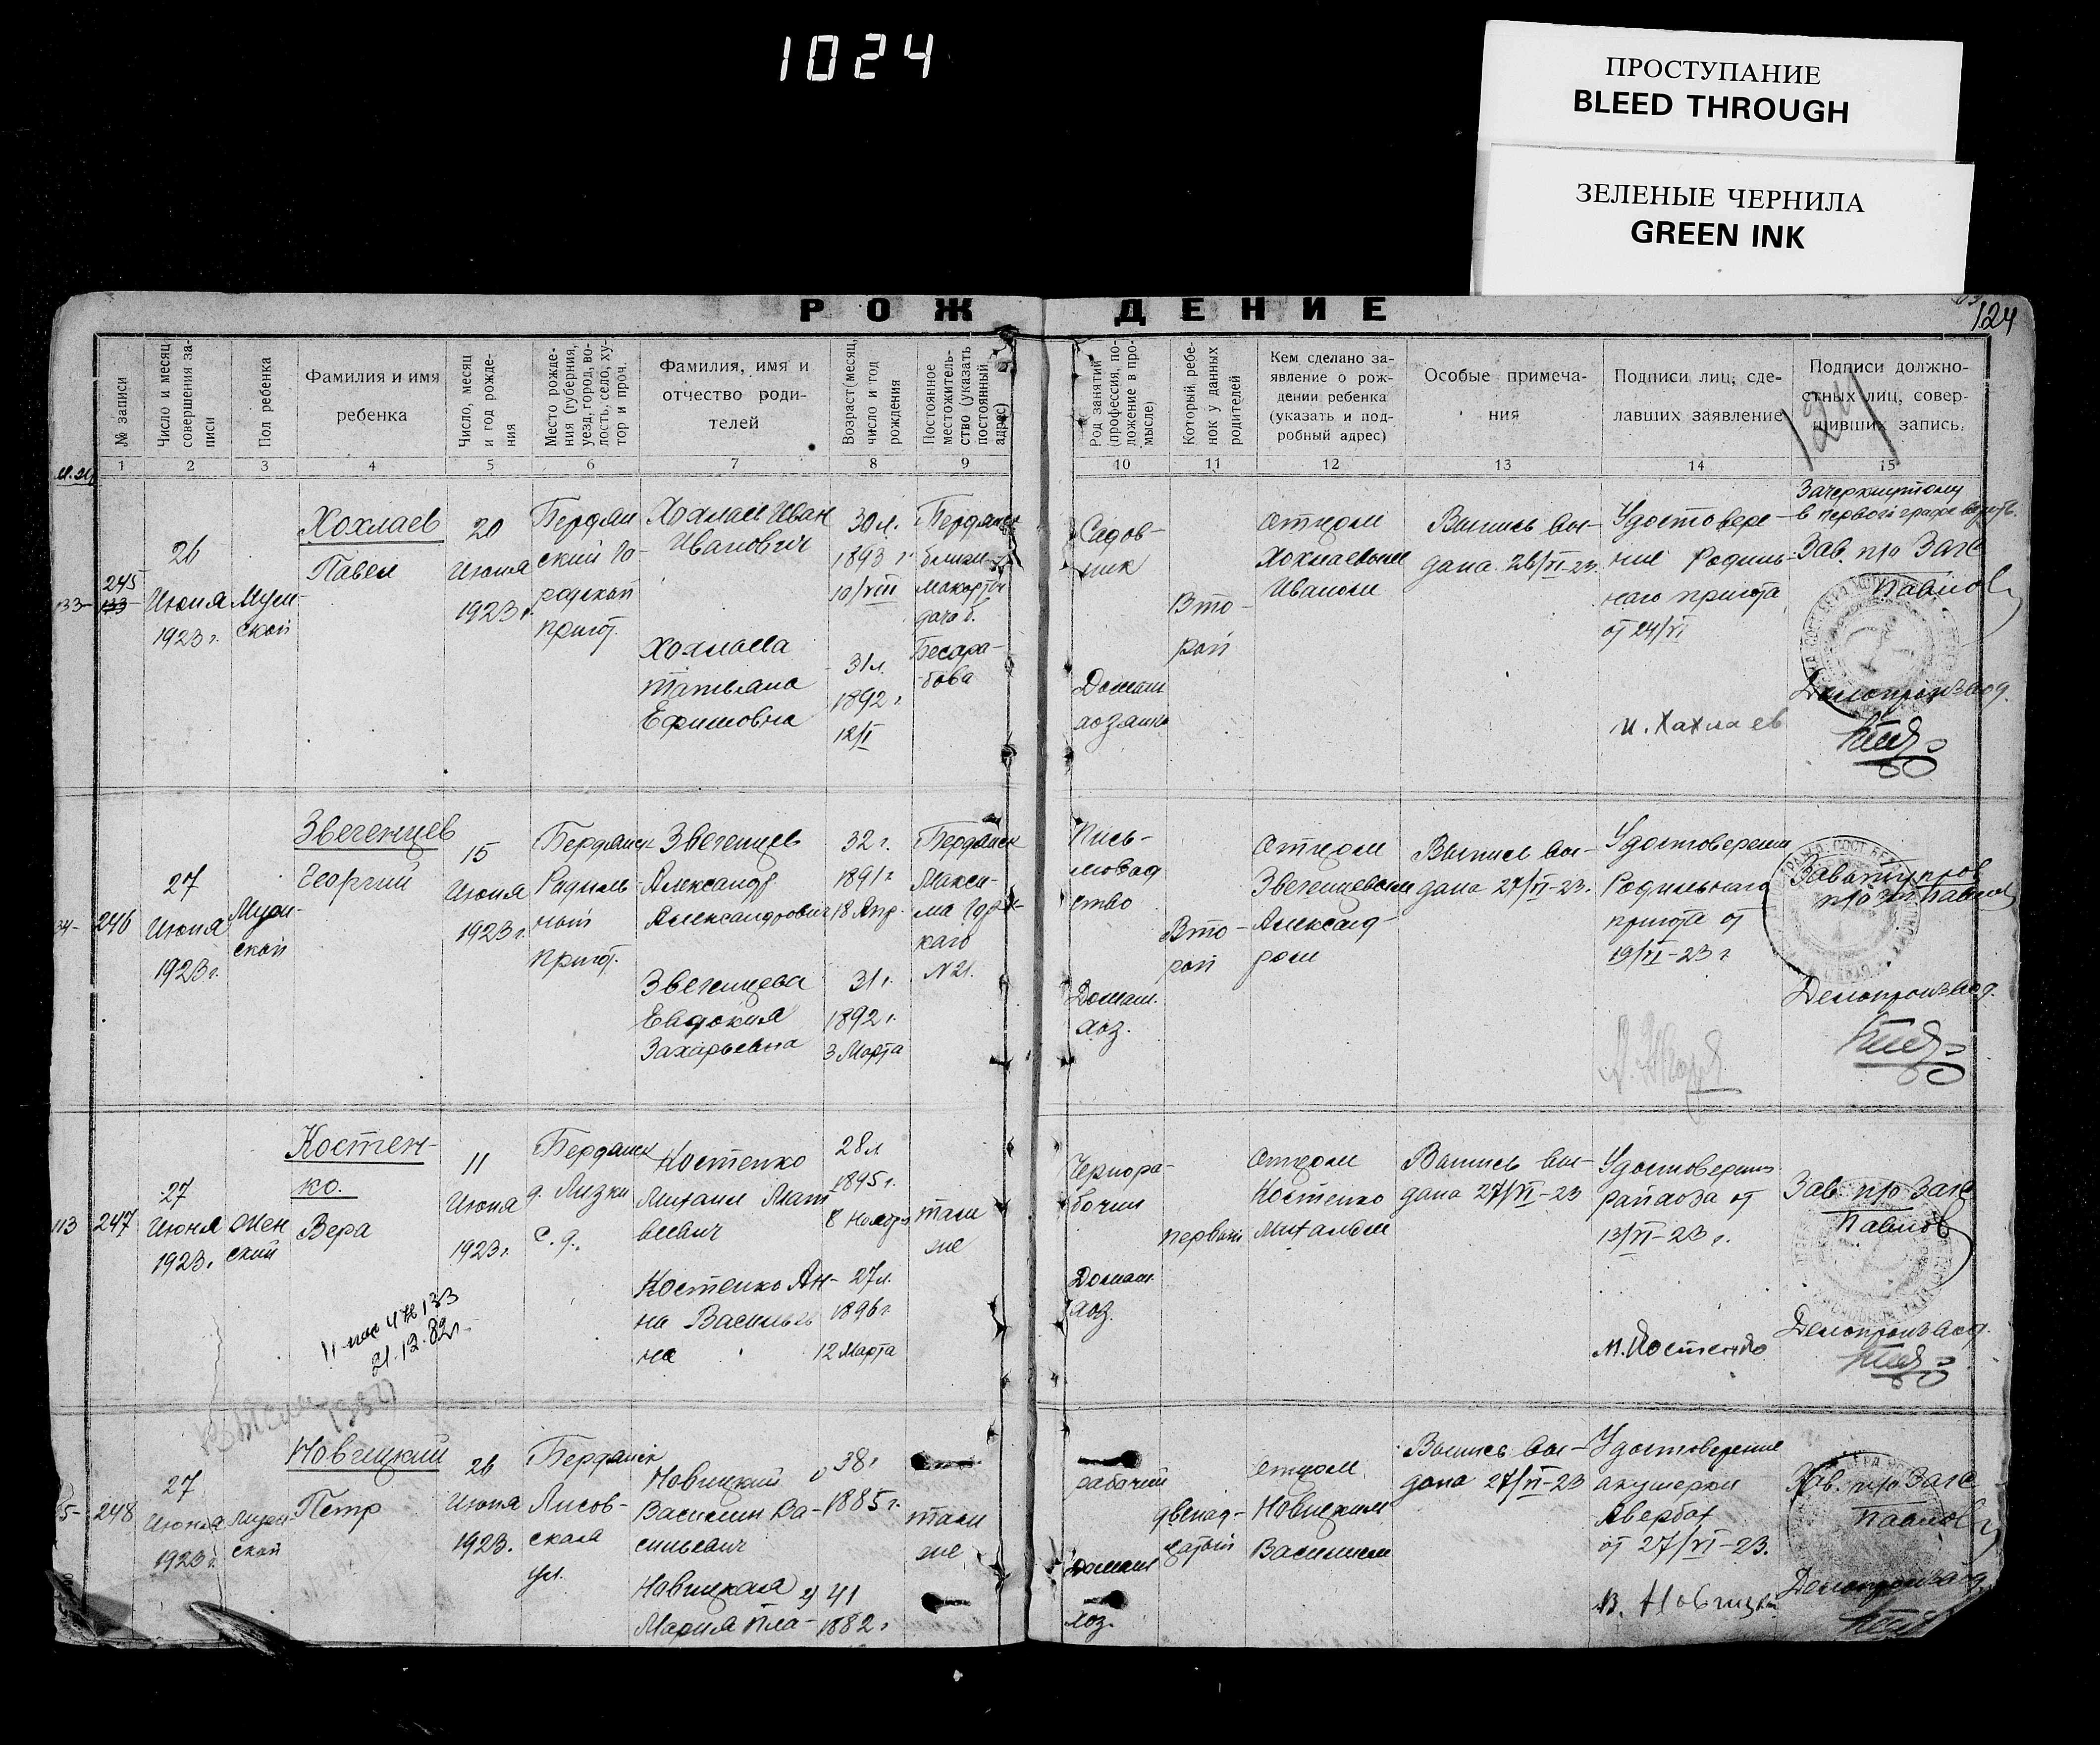 1024
ПРОСТУПАНИЕ
BLEED THROUGH
ЗЕЛЕНЫЕ ЧЕРНИЛА
GREEN INK
РОЖДЕНИЕ
124
№ записи
Число и месяц
совершения за-
писи
Пол ребенка
Фамилия и имя
ребенка
Число, месяц
и год рожде-
ния
Место рожде-
ния (губерния,
уезд, город, во-
лость, село, ху-
тор и проч.
Фамилия, имя и
отчество роди-
телей
Возраст (месяц,
число и год
рождения
Постоянное
местожитель-
ство (указать
постоянный
адрес)
Род занятий
(профессия, по-
ложение в про-
мысле)
Который ребе-
нок у данных
родителей
Кем сделано за-
явление о рож-
дении ребенка
(указать и под-
робный адрес)
Особые примеча-
ния
Подписи лиц, сде-
лавших заявление
Подписи должно-
стных лиц, совер-
шивших запись.
124
1 2 3 4 5 6 7 8 9 10 11 12 13 14 15
133-
245
133
26
Июня
1923 г.
Муж-
ской
Хохлаев
Павел
20
Июня
1923 г.
Бердян
ский Го-
родской
приют.
Хохлаев Иван
Иванович
Хохлаева
Татьяна
Ефимовна
30 л.
1893 г
10/VIII
31 л.
1892 г
12/I
Бердянск
дача б.
Бесара-
-бова
Садов-
ник
Домаш
хозяйка
Вто-
рой
Отцом
Хохлаевым
Иваном
Выпись вы-
дана 26/VI-23.
Удостовере-
ние Родиль-
наго приюта
от 24/VI
И. Хахлаев
Зачеркнутому
в первой графе верить.
Зав. п/о Загс
Павлов
Делопроизвод.
34-
246
27
Июня
1923 г.
Муж-
ской
Звегенцев
Георгий
15
Июня
1923 г.
Бердянск
Родиль-
ный
приют.
Звегенцев
Александр
Александрович
Звегенцева
Евдокия
Захарьевна
32 г.
1891 г
18 Апр.
31 г.
1892 г.
3 Марта
Бердянск
Макси-
ма Горь-
каго
N 21.
Пись-
мовод
ство
Домаш.
хоз.
Вто-
рой
Отцом
Звегенцевым
Александ-
ром
Выпись вы-
дана 27/VI-23.
Удостоверение
Родильнаго
приюта от
19/VI-23 г
Павлов
Делопроизвод.
113
247
27
Июня
1923 г.
Жен
ский
Костен-
ко.
Вера
11
Июня
1923 г.
Бердянск
д. Лизки
с. д.
Костенко
Михаил Мат
веевич
Костенко Ан-
на Василье
на
28 л
1895 г.
8 Ноября
27 л.
1896 г
12 Марта
там
же
Чернора-
бочий
Домаш.
хоз.
первый
Отцом
Костенко
Михаилом
Выпись вы-
дана 27/VI-23
Удостоверение
от
13/VI-23 г.
М. Костенко
Зав. п/о Загс
Павлов
Делопроизвод.
21.12.82г.
5-
248
27
Июня
1923 г.
Муж-
ской
Новицкий
Петр
26
Июня
1923.
Бердянск
Лисов-
ская
ул.
Новицкий
Василий Ва-
сильевич
Новицкая
Мария Пла-
38 г
1885 г.
41
1882 г
там
же
рабочий
домаш
хоз.
двенад-
цатый
Отцом
Новицким
Василием
Выпись вы-
дана 27/VI-23
Удостоверение
акушерки
Авербах
от 27/VI-23.
В. Новицкий
Зав. п/о Загс
Павлов
Делопроизвод